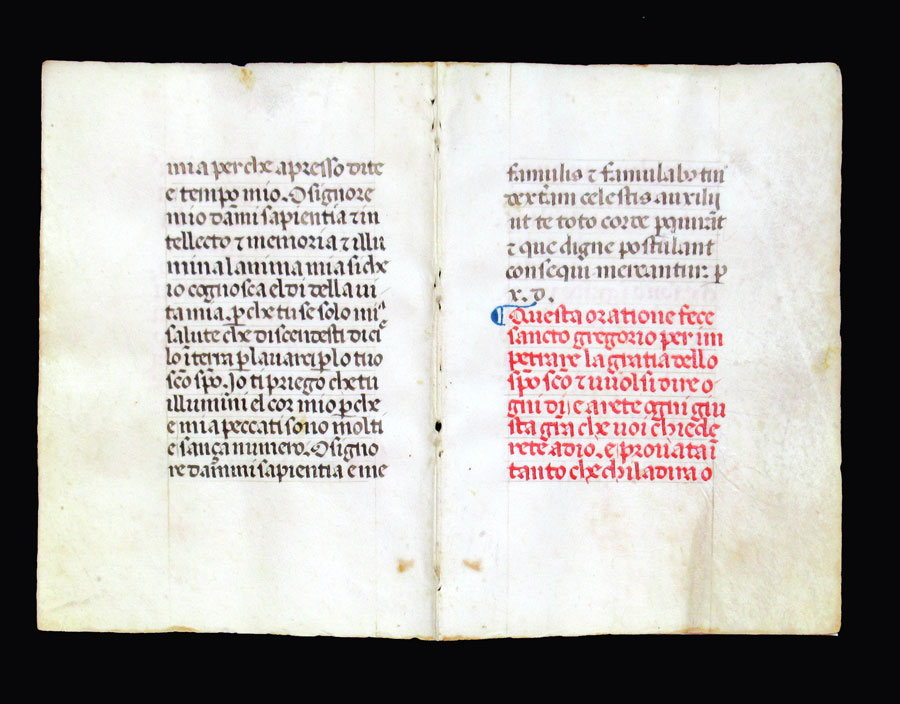 mia perche apresso dite
e tempo mio. O signore
mio dāmi sapientia ⁊ in
tellecto ⁊ memoria ⁊ illu
mina lanima mia si che
io cognosca el di della ui
ta mia. ꝑche tu se solo mia
salute che discendesti di cie
lo ī terra ꝑ lauare ꝑ lo tuo
sc̄o sp̄o. Io ti priego che tu
illumini el cor mio ꝑche
e mia peccati sono molti
e sança numero. O signo
re dam̄mi sapientia e me
famulis ⁊ famulabꝰ tuis
dext̄am celestis auxilij
ut te toto corde ꝑquirāt
⁊ que digne postulant
consequi mereantur. ꝑ
x. d.
¶ Questa oratione fece
sancto gregorio per im
petrare la gratia dello
sp̄o sc̄o ⁊ uuolsi dire o
gni di e arete ogni giu
sta gr̄a che uoi chiede
rete a dio. e prouata ī
tanto che chi la dira o